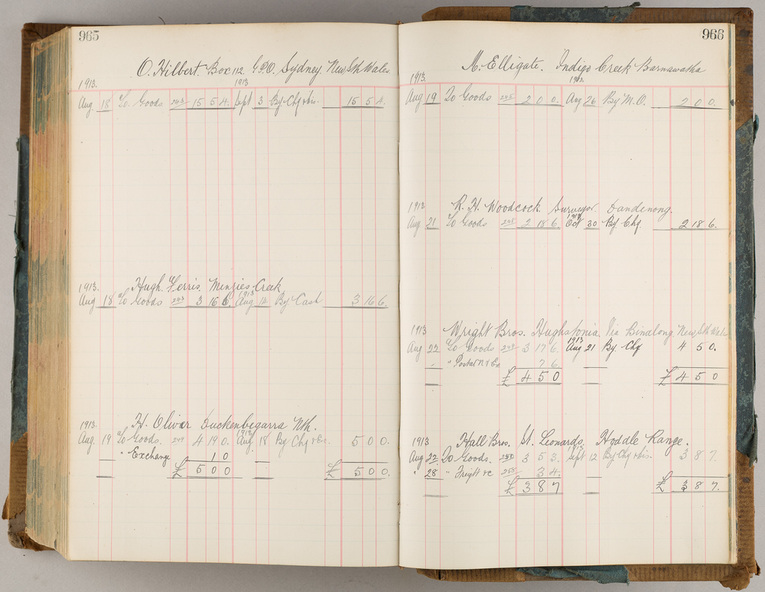 965
O. Hilbert Box 112 G.P.O. Sydney New Sth Wales
1913. 1913
Aug 18 To Goods 15 5 4. Sept 3 By Chq 15 5 4.
1913. Hugh Ferris Menzies Creek
1913
Aug 18 To Goods 3 16 6 Aug 12 By Cash 3 16 6
1913. H. Oliver Duckenbegarra Nth.
1913
Aug. 19 To Goods. 4 19 0. Aug 18 By Chq 5 0 0.
— " Exchange 1 0 —
— £ 5 0 0 — £ 5 0 0.
966
M. Elligate. Indigo Creek Barnawatha
1913. 1913.
Aug 19 To Goods 2 0 0. Aug 26 By M.O. 2 0 0.
1913 R. H. Woodcock Surveyor. Dandenong.
1913
Aug 21 To Goods 2 18 6. Oct 30 By Chq 2 18 6.
1913 Wright Bros. Hughstonia Via Binalong New Sth Wales
1913
Aug 22 To Goods 3 17 6 Aug 21 By Chq 4 5 0.
— " 7 6 —
— £ 4 5 0 — £ 4 5 0
1913 Hall Bros. St. Leonards, Hoddle Range.
Aug 22 To Goods. 3 5 3. Sept 12 By Chq 3 8 7.
" 28 " Freight 3 4. —
— £ 3 8 7 — £ 3 8 7.